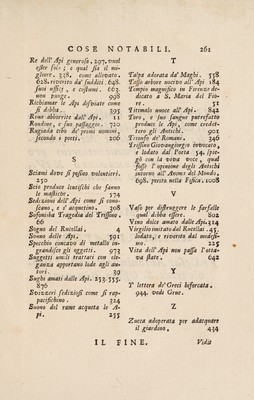 COSE NOTABILI. 261
Re dell' Api generoso. 297. vuol
esser solo; e qual sia il mi-
gliore. 338. come allevato.
628. riverito da' sudditi. 648.
suoi uffici, e costumi. 663.
non punge. 998
Richiamar le Api disviate come
si debba. 395
Rane abborrite dall' Api. 11
Rondine, e suo passaggio. 720
Rugiada cibo de' primi uomini,
secondo i poeti. 206
S
Sciami dove si posino volentieri.
250
Seta produce le utilità che fanno
le mastiche. 574
Sedizioni dell' Api come si cono-
scano, e s' acquetino. 208
Sofonisba Tragedia del Trissino.
66
Sogno del Rucellai. 4
Sonno delle Api. 591
Specchio concavo di metallo in-
grandisce gli oggetti. 973
Suggetti umili trattati con ele-
ganza apportano lode agli au-
tori. 39
Sughi amati dalle Api. 253. 555.
876
Svizzeri sediziosi come si rap-
pacifichino. 324
Suono del rame acqueta le A-
pi. 255
T
Talpa adorata da' Maghi. 558
Tasso arbore nocivo all' Api 184
Tempio magnifico in Firenze de-
dicato a S. Maria del Fio-
re. 51
Titimalo nuoce all' Api. 842
Toro, e suo sangue putrefatto
produce le Api, come credet-
tero gli Antichi. 901
Trionfo de' Romani. 346
Trissino Giovangiorgio invocato,
e lodato dal Poeta 54. spie-
gò con la viva voce, qual
fosse l' opinione degli Antichi
intorno all' Anima del Mondo.
698. perito nella Fisica. 1008
V
Vaso per distruggere le farfalle
qual debba essere. 802
Vino dolce amato dalle Api. 224
Virgilio imitato dal Rucellai. 45.
lodato, e riverito dal medesi-
mo. 225
Vita dell' Api non passa l' otta-
va state. 642
Y
Y lettera de' Greci biforcata.
944. vedi Grue.
Z
Zucca adoperata per adacquare
il giardino. 434
IL FINE.
Vidit